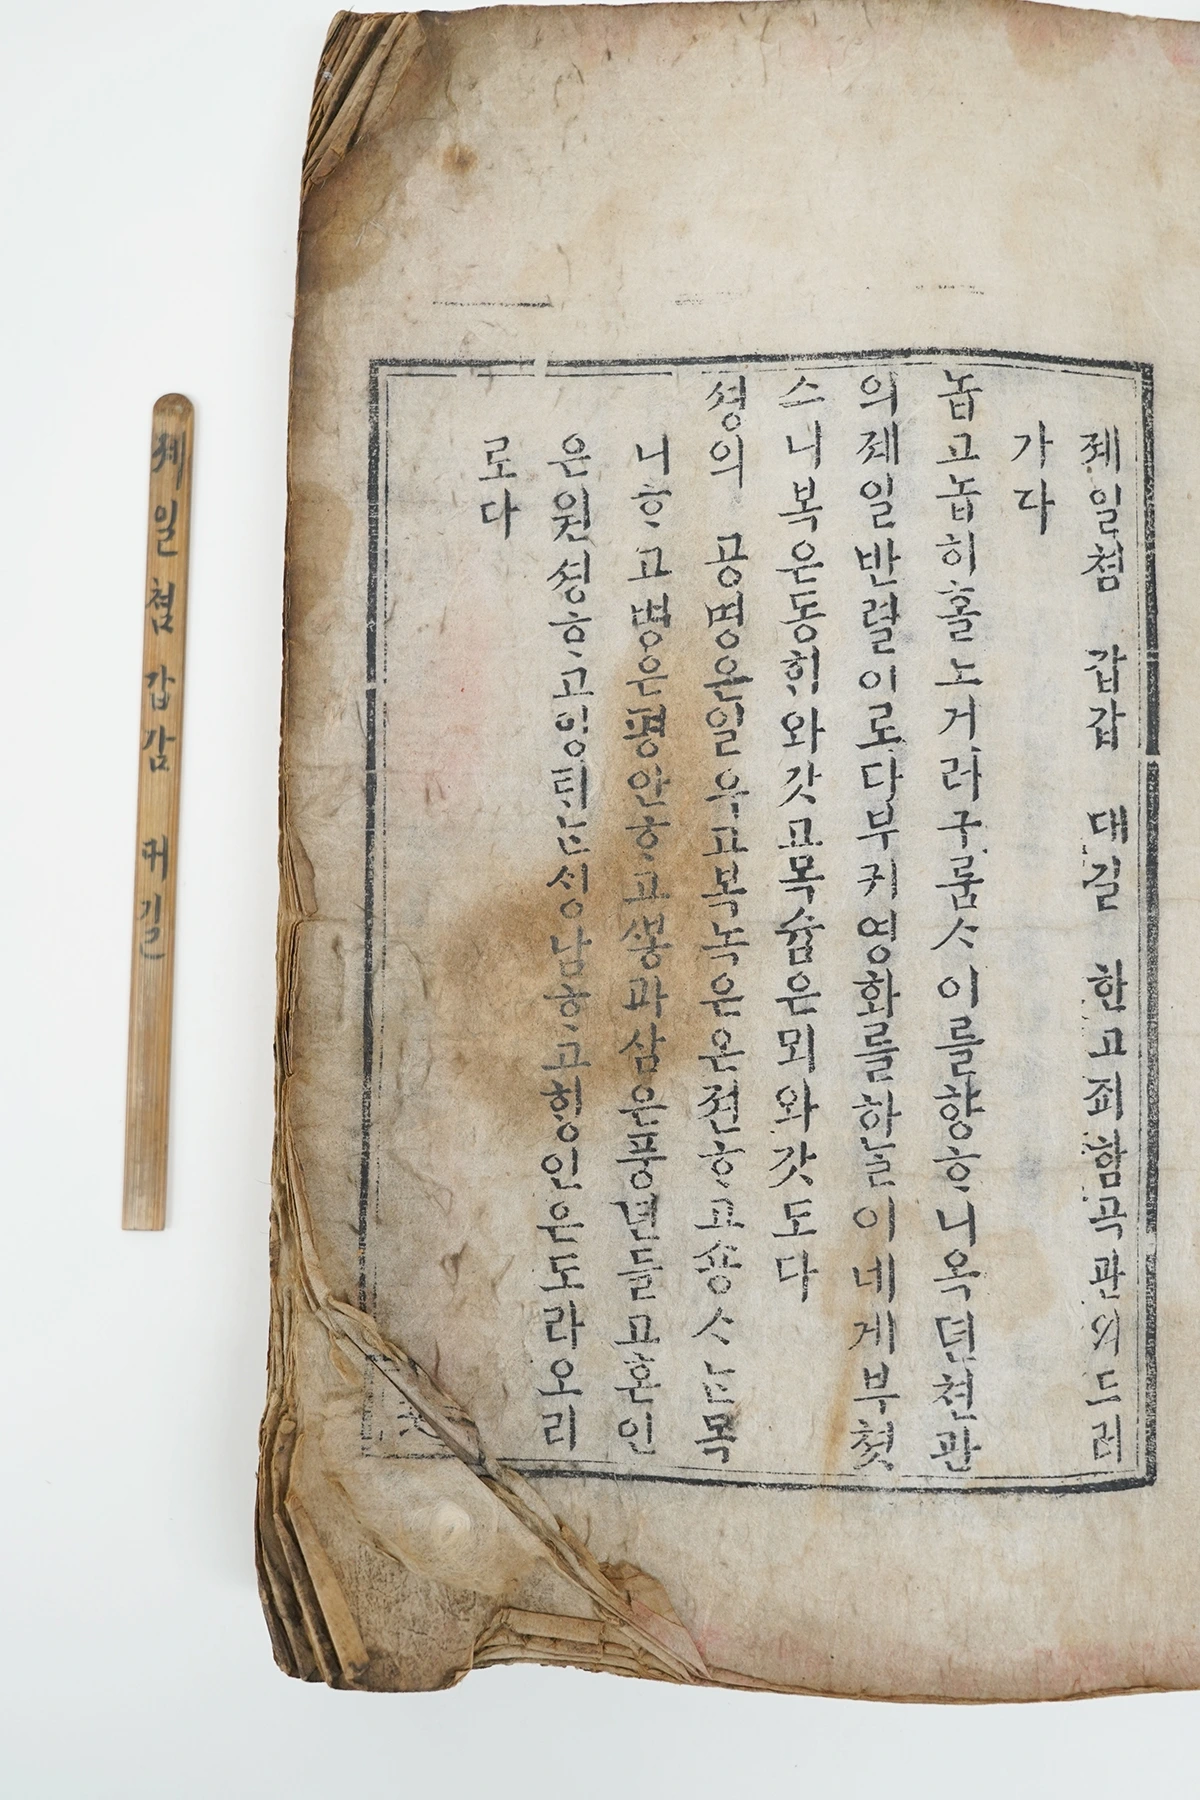 제일쳠 갑갑 대길 한고죄함곡관의드러
가다
놉고놉히홀노거러구룸ᄉ이를향ᄒᆞ니옥뎐쳔관
의제일반렬이로다부귀영화를하ᄂᆞᆯ이네게부쳣
스니복은동ᄒᆡ와갓고목슘은뫼와갓도다
셩의 공명은일우고복녹은온젼ᄒᆞ고숑ᄉᄂᆞᆫ목
니ᄒᆞ고병은평안ᄒᆞ고ᄲᅩᆼ과삼은풍년들고혼인
은원셩ᄒᆞ고잉ᄐᆡᄂᆞᆫᄉᆡᆼ남ᄒᆞ고ᄒᆡᆼ인은도라오리
로다
제일쳠 갑갑 대길